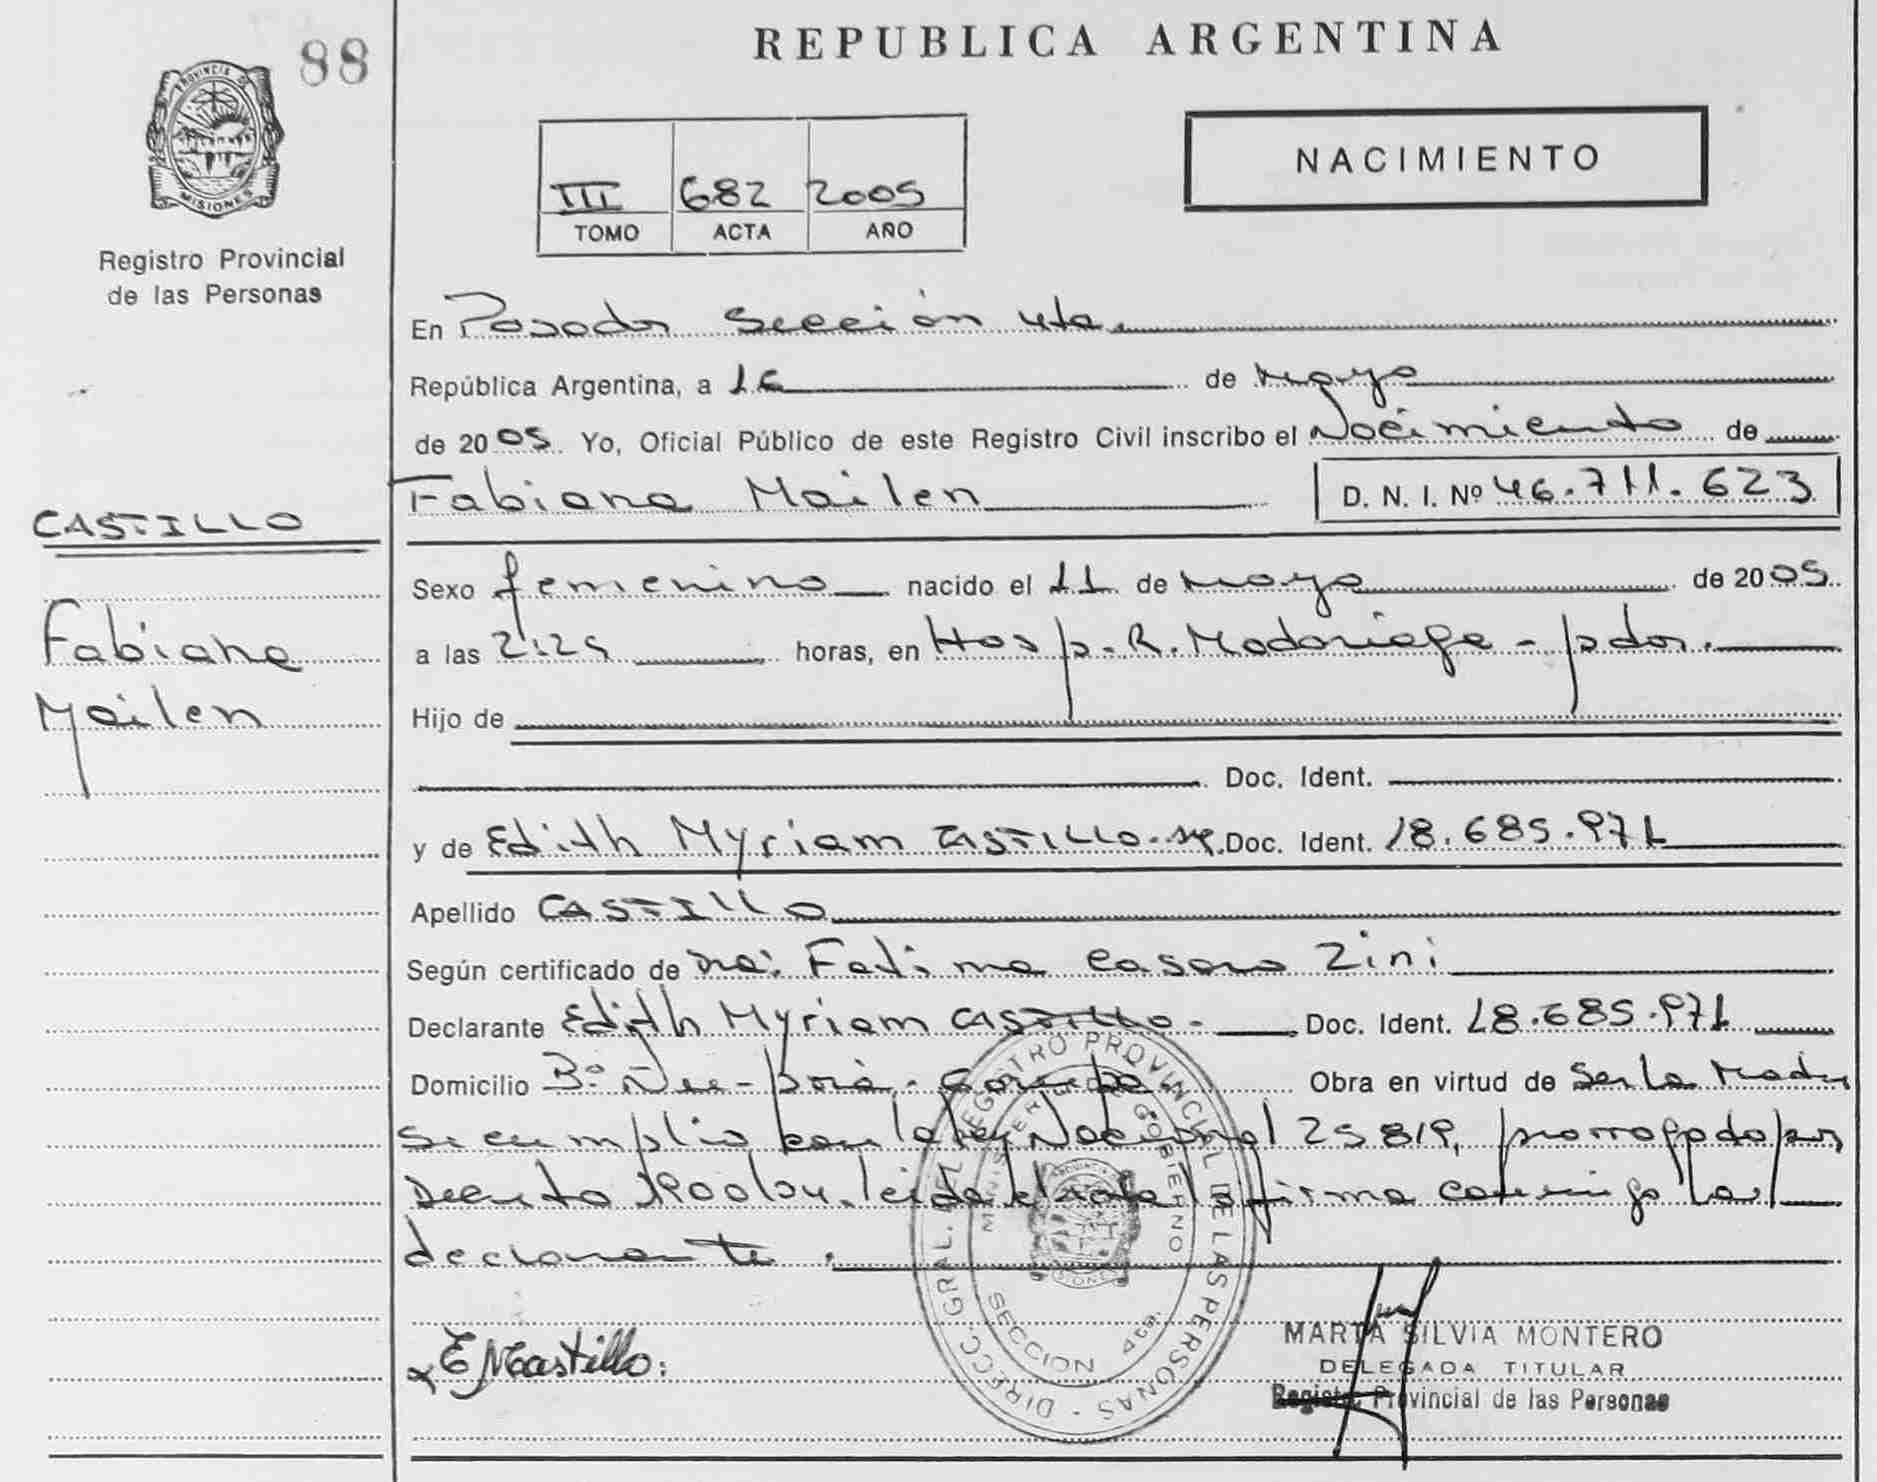 88
REPUBLICA ARGENTINA
PROVINCIA DE
MISIONES
Registro Provincial
de las Personas
III 682 2005
TOMO ACTA AÑO
NACIMIENTO
En Posadas Sección 4ta.
República Argentina, a 16 de Mayo
de 2005. Yo, Oficial Público de este Registro Civil inscribo el Nacimiento de
Fabiana Mailen D. N. I. Nº 46.711.623
CASTILLO
Fabiana
Mailen
Sexo femenino nacido el 11 de Mayo de 2005
a las 2:25 horas, en Hosp. R. Madariaga - pdas.
Hijo de
Doc. Ident.
y de Edith Myriam CASTILLO Doc. Ident. 18.685.971
Apellido CASTILLO
Según certificado de Dra: Fatima Casaro Zini
Declarante Edith Myriam CASTILLO - Doc. Ident. 18.685.971
Domicilio Bº Garupa Obra en virtud de ser la Madre
Se cumplio con la ley Nacional 25819, prorrogado por
Decreto leida el acta la firma conmigo la
declarante.
DIRECC. GRAL. DEL REGISTRO PROVINCIAL DE LAS PERSONAS
MINISTERIO DE GOBIERNO
SECCION 4ta.
MISIONES
E M Castillo:
MARTA SILVIA MONTERO
DELEGADA TITULAR
Registro Provincial de las Personas